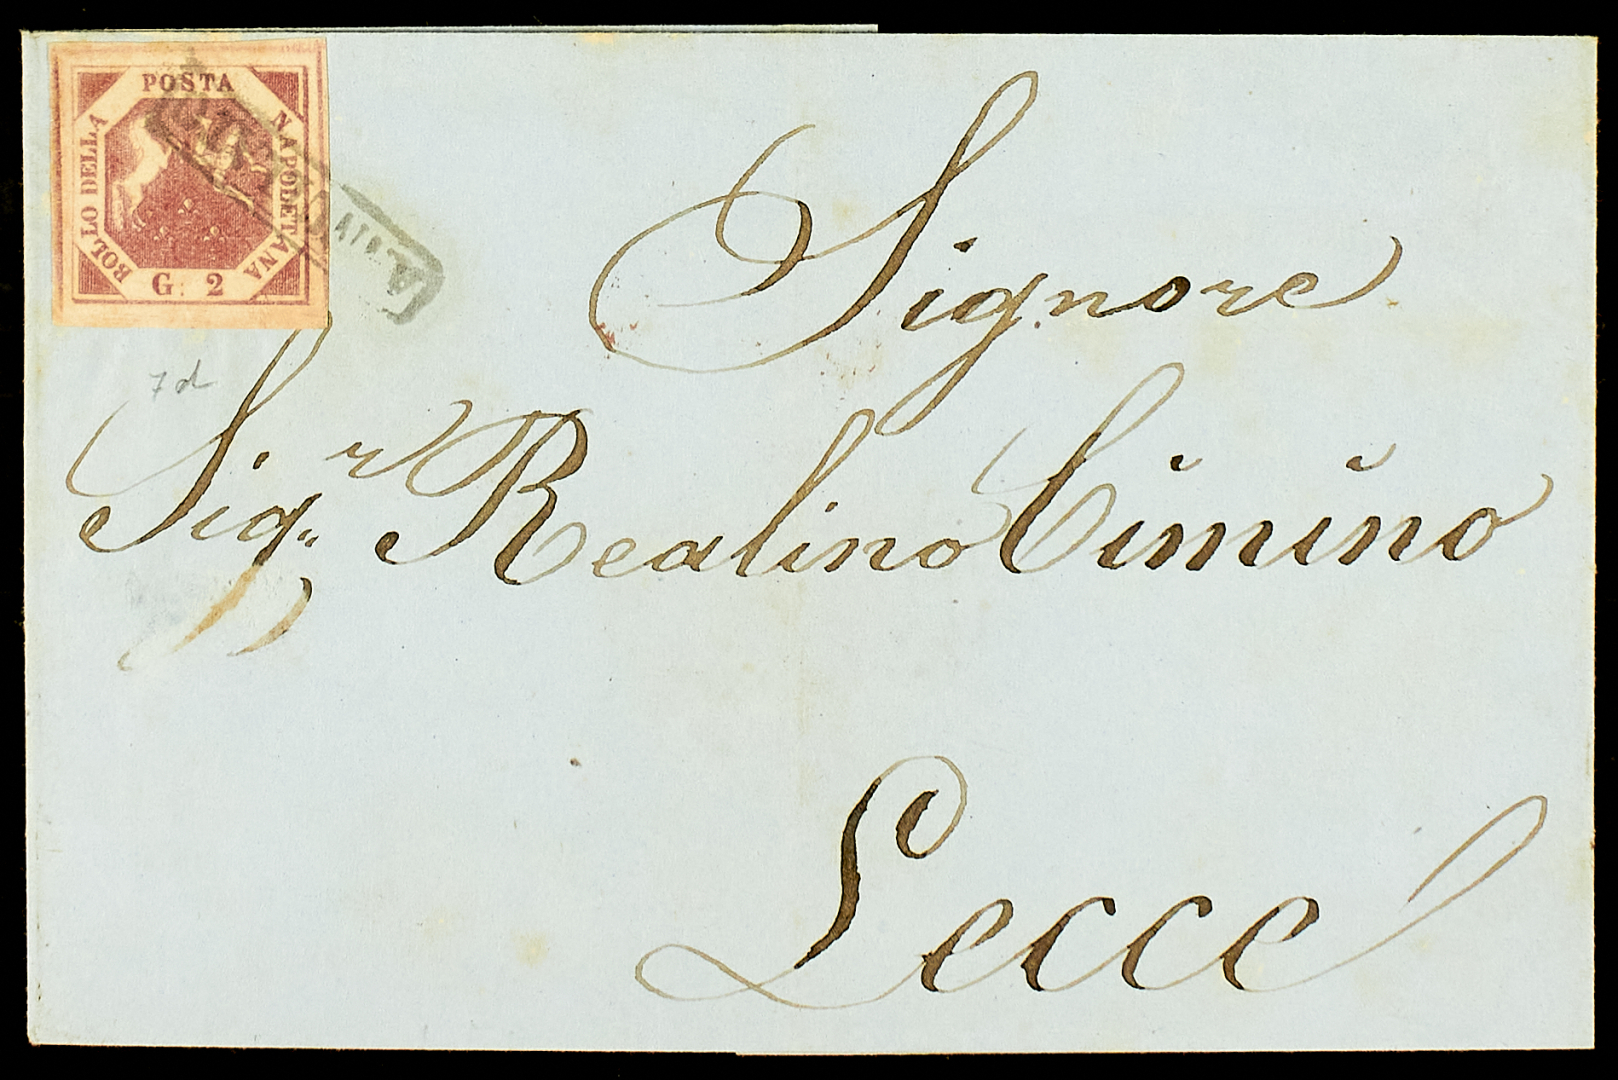 POSTA
NAPOLETANA
BOLLO DELLA
G. 2
7d
Signore
Sig.r Realino Cimino
Lecce